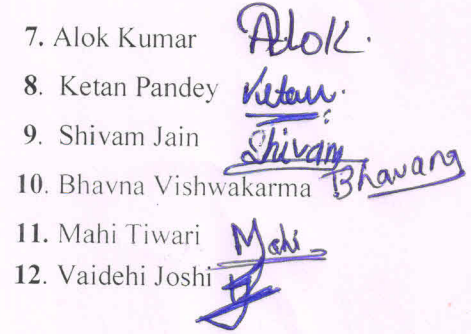 7. Alok Kumar Alok.
8. Ketan Pandey Ketan.
9. Shivam Jain Shivam
10. Bhavna Vishwakarma Bhavana
11. Mahi Tiwari Mahi
12. Vaidehi Joshi